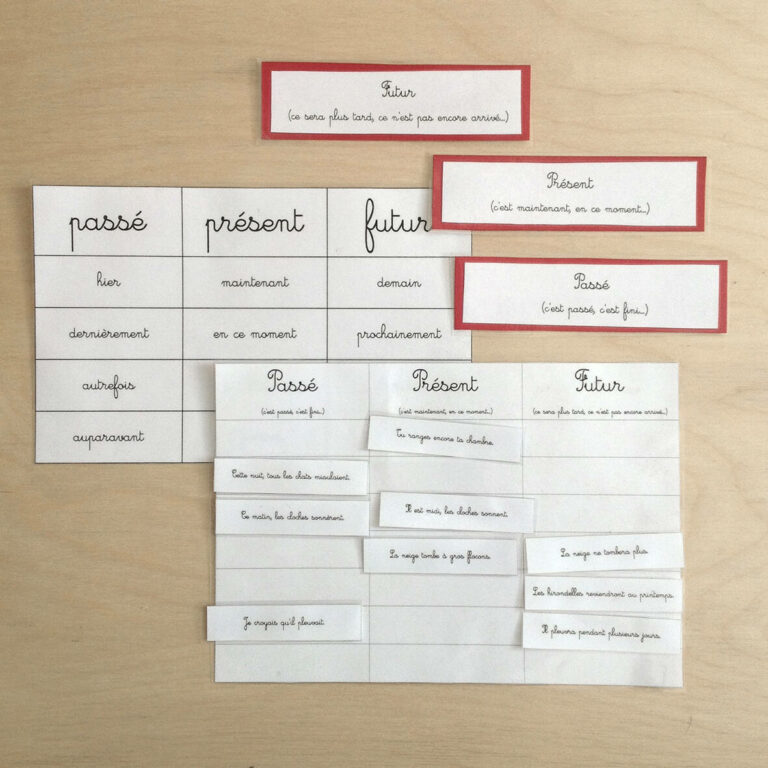 Futur
(ce sera plus tard, ce n'est pas encore arrivé...)
Présent
(c'est maintenant, en ce moment...)
Passé
(c'est passé, c'est fini...)
passé présent futur
hier maintenant demain
dernièrement en ce moment prochainement
autrefois
auparavant
Passé Présent Futur
(c'est passé, c'est fini...) (c'est maintenant, en ce moment...) (ce sera plus tard, ce n'est pas encore arrivé...)
Tu ranges encore ta chambre.
Cette nuit, tous les chats miaulaient.
Ce matin, les cloches sonnèrent. Il est midi, les cloches sonnent.
La neige tombe à gros flocons. La neige ne tombera plus.
Les hirondelles reviendront au printemps.
Je croyais qu'il pleuvait. Il pleuvra pendant plusieurs jours.